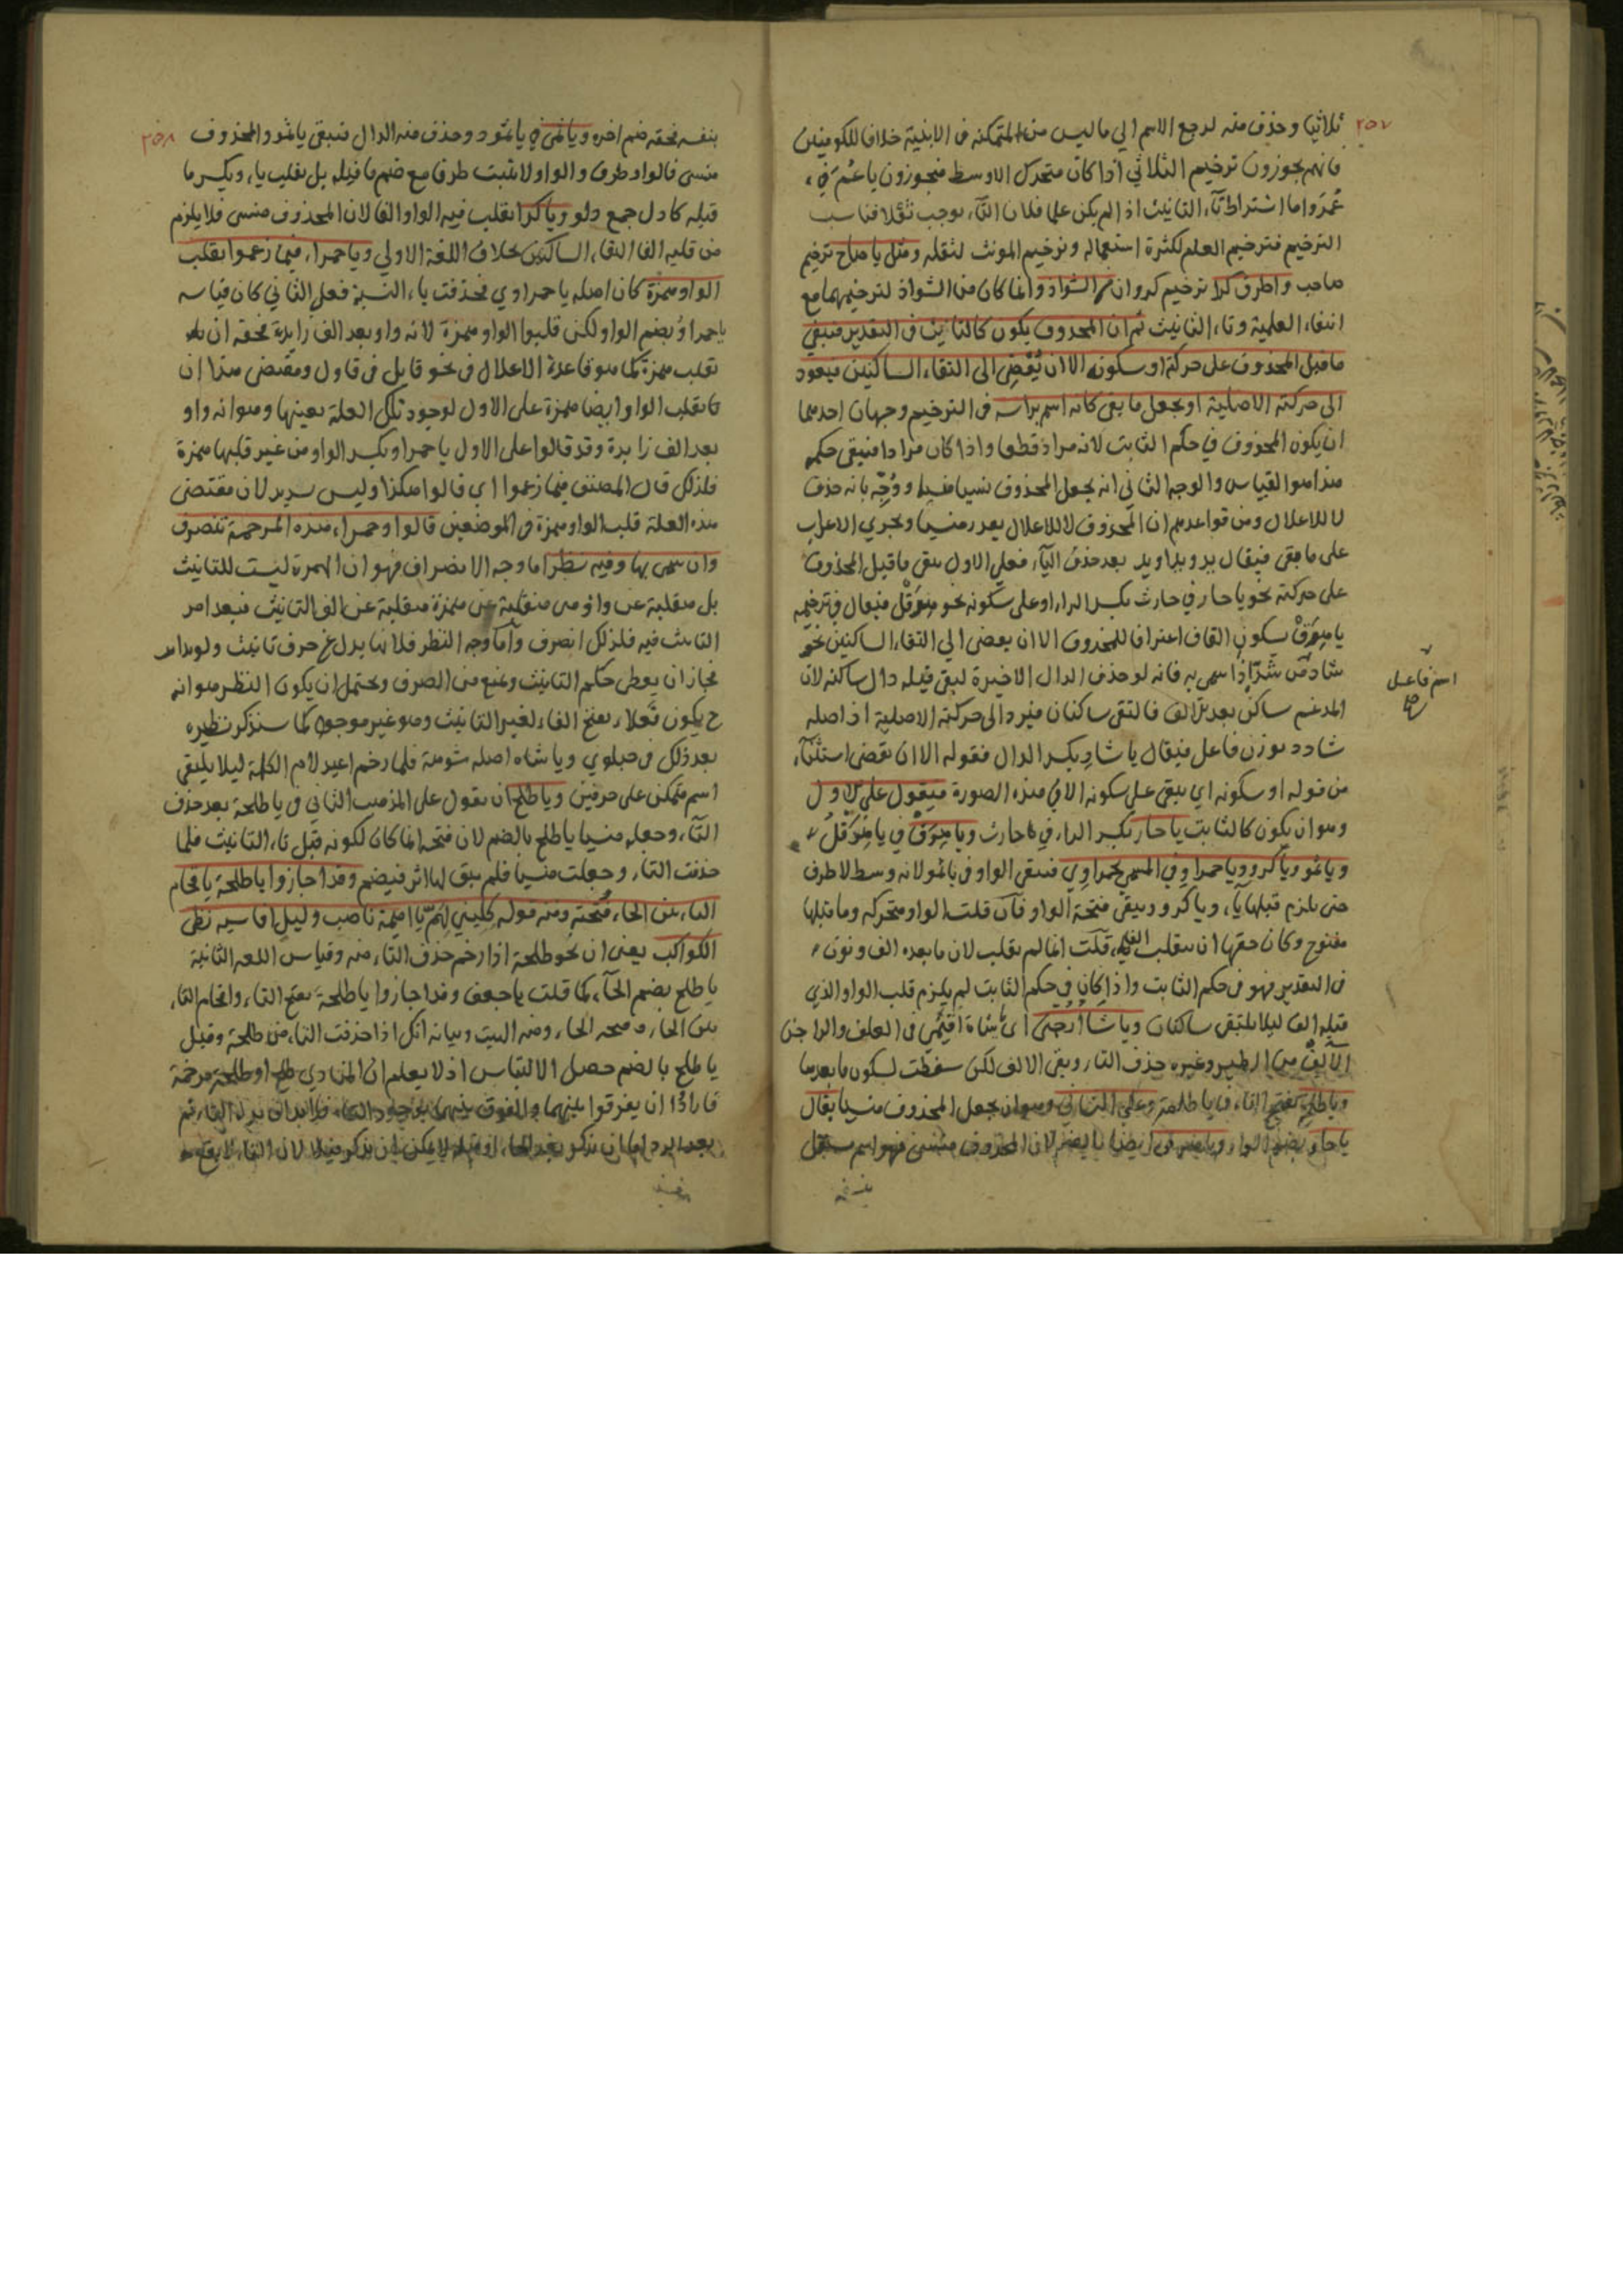 ٢٥٧
ثلاثيا وحذف منه لرجع الاسم الي ما ليس من المتمكنه فى الابنية خلافا للكوفيين
فانهم يجوزون ترخيم الثلاثي اذا كان متحرك الاوسط فيجوزون يا عُمَ في
عُمَر واما اشتراط تآء التانيث اذا لم يكن علما فلان التآء يوجب ثقلا فناسب
الترخيم فترخيم العلم لكثرة استعماله وترخيم المونث لثقله ومثل يا صاح ترخيم
صاحب واطرق كرا ترخيم كروان من الشواذ وانما كان من الشواذ لترخيمهما مع
انتفاء العلمية وتاء التانيث ثم ان المحذوف يكون كالثابت فى التقدير فيبقي
ما قبل المحذوف على حركته او سكونه الا ان يُفضِي الى التقاء الساكنين فيعود
الى حركته الاصلية او يجعل ما بقى كانه اسم براسه فى الترخيم وجهان احدهما
ان يكون المحذوف في حكم الثابت لانه مراد قطعا واذا كان مرادا فيبقى حكمه
هذا هو القياس والوجه الثاني انه يجعل المحذوف نسيا منسيا ووُجِّه بانه حذف
لا للاعلال ومن قواعدهم ان المحذوف لا للاعلال يعد منسيا ويجري الاعراب
على ما بقى فيقال يد ويدا ويد بعد حذف اليآء فعلى الاول يبقى ما قبل المحذوف
على حركته نحو يا حار في حارث بكسر الراء او على سكونه نحو هِرَقْل فيقال فى ترخيمه
يا هِرَقْ بسكون القاف اعترافا للمحذوف الا ان يفضى الي التقاء الساكنين نحو
شادّ من شَدَّ اذا سمى به فانه لو حذف الدال الاخيرة لبقى قبله دال ساكنه لان
المدغم ساكن بعد الف فالتقى ساكنان فيرد الى حركته الاصلية اذ اصله
شادد بوزن فاعل فيقال يا شادِ بكسر الدال فقوله الا ان يفضى استثنآء
من قوله او سكونه اي يبقى على سكونه الا في هذه الصورة فيقول على الاول
وهو ان يكون كالثابت يا حار بكسر الراء في حارث ويا هِرَقْ في يا هِرَقْلُ
ويا ثمو ويا كرو ويا حمراوِ في المسمي بحمراوِي فيبقى الواو فى يا ثمو لانه وسط لا طرف
حتى يلزم قبلها يآء ويا كرو ويبقى فتحة الواو فآن قلت الواو متحركه وما قبلها
مفتوح وكان حقها ان ينقلب الفا قلت انما لم يقلب لان ما بعده الف ونون
فى التقدير فهو فى حكم الثابت واذا كان في حكم الثابت لم يلزم قلب الواو الذي
قبله الفا ليلا يلتقى ساكنان ويا شَا ارْجني اى يا شاة اقيمي فى العلف والراجن
الآلِفُ من الطير وغيره حذف التاء وبقى الالف لكن سقطت لسكون ما بعدها
ويا طلح بفتح التاء فى يا طلحة وعلى الثاني وهو ان يجعل المحذوف منسيا يقال
يا حارُ بضم الراء ويا هرق ايضا بالضم لان المحذوف منسى فهو اسم مستقل
بنفسه
اسم فاعل
صح
٢٥٨
بنفسه فحقه ضم اخره ويا ثمى في يا ثمود وحذف منه الدال فيبقى يا ثمو والمحذوف
منسى فالواو طرف والواو لا يثبت طرفا مع ضم ما قبله بل يقلب ياء ويكسر ما
قبله كادل جمع دلو ويا كرا بقلب فيه الواو الفا لان المحذوف منسى فلا يلزم
من قلبه الفا التقاء الساكنين بخلاف اللغة الاولي ويا حمراء فيما زعموا بقلب
الواو همزة كان اصله يا حمراوي فحذفت ياء النسبة فعلى الثاني كان قياسه
يا حمراوُ بضم الواو لكن قلبوا الواو همزة لانه واو بعد الف زايدة فحقه ان
يقلب همزة كما هو قاعدة الاعلال فى نحو قايل فى قاول ومقتضى هذا ان
يقلب الواو ايضا همزة على الاول لوجود تلك العلة بعينها وهو انه واو
بعد الف زايدة وقد قالوا على الاول يا حمراو بكسر الواو من غير قلبها همزة
فلذلك قال المصنف فيما زعموا اي قالوا هكذا وليس سديد لان مقتضى
هذه العلة قلب الواو همزة فى الموضعين قالوا وحمراء هذه المرخمة تنصرف
وان سمى بها وفيه نظر اما وجه الانصراف فهو ان الهمزة ليست للتانيث
بل منقلبة عن واو هى منقلبة عن همزة منقلبة عن الف التانيث فبعد امر
التانيث فيه فلذلك انصرف وآما وجه النظر فلانها بدل عن حرف تانيث
فجاز ان يعطى حكم التانيث ويمنع من الصرف ويحتمل ان يكون النظر هو انه
ح يكون فَعلاء بفتح الفاء لغير التانيث وهو غير موجود كما سنذكر نظيره
بعد ذلك فى حبلوي ويا شاه اصله شوهة فلما رخم اعيد لام الكلمة ليلا يبقى
اسم متمكن على حرفين ويا طلح ان يقول على المذهب الثاني فى يا طلحة بعد حذف
التآء وجعله منسيا يا طلح بالضم لان فتحه انما كان لكونه قبل تاء التانيث فلما
حذفت التاء وجعلت منسيا فلم يبق لها اثر فيضم وقد اجازوا يا طلحة باقحام
التاء بين الحاء وفَتحته ومنه قوله كِلِيني لِهَمٍّ يا اميمة ناصب وليل اقاسيه بَطى
الكواكب يعنى ان نحو طلحة اذا رخم حذف التاء منه وقياس اللغه الثانية
يا طلح بضم الحآء كما قلت يا جعف وقد اجازوا يا طلحةَ بفتح التاء واقحام التاء
بين الحاء وفتحه الحاء ومنه البيت وبيانه انك اذا حذفت التاء من طلحة وقيل
يا طلح بالضم حصل الالتباس اذ لا يعلم ان المنادي طلح او طلحة مرخمة
فارادوا ان يفرقوا بينهما والفرق بينهما بوجود التاء فلابد ان يرد التاء ثم
بعد الرد اما ان يذكر بعد الحاء او قبله لا يمكن ان يذكر قبله لان التاء لا يقع